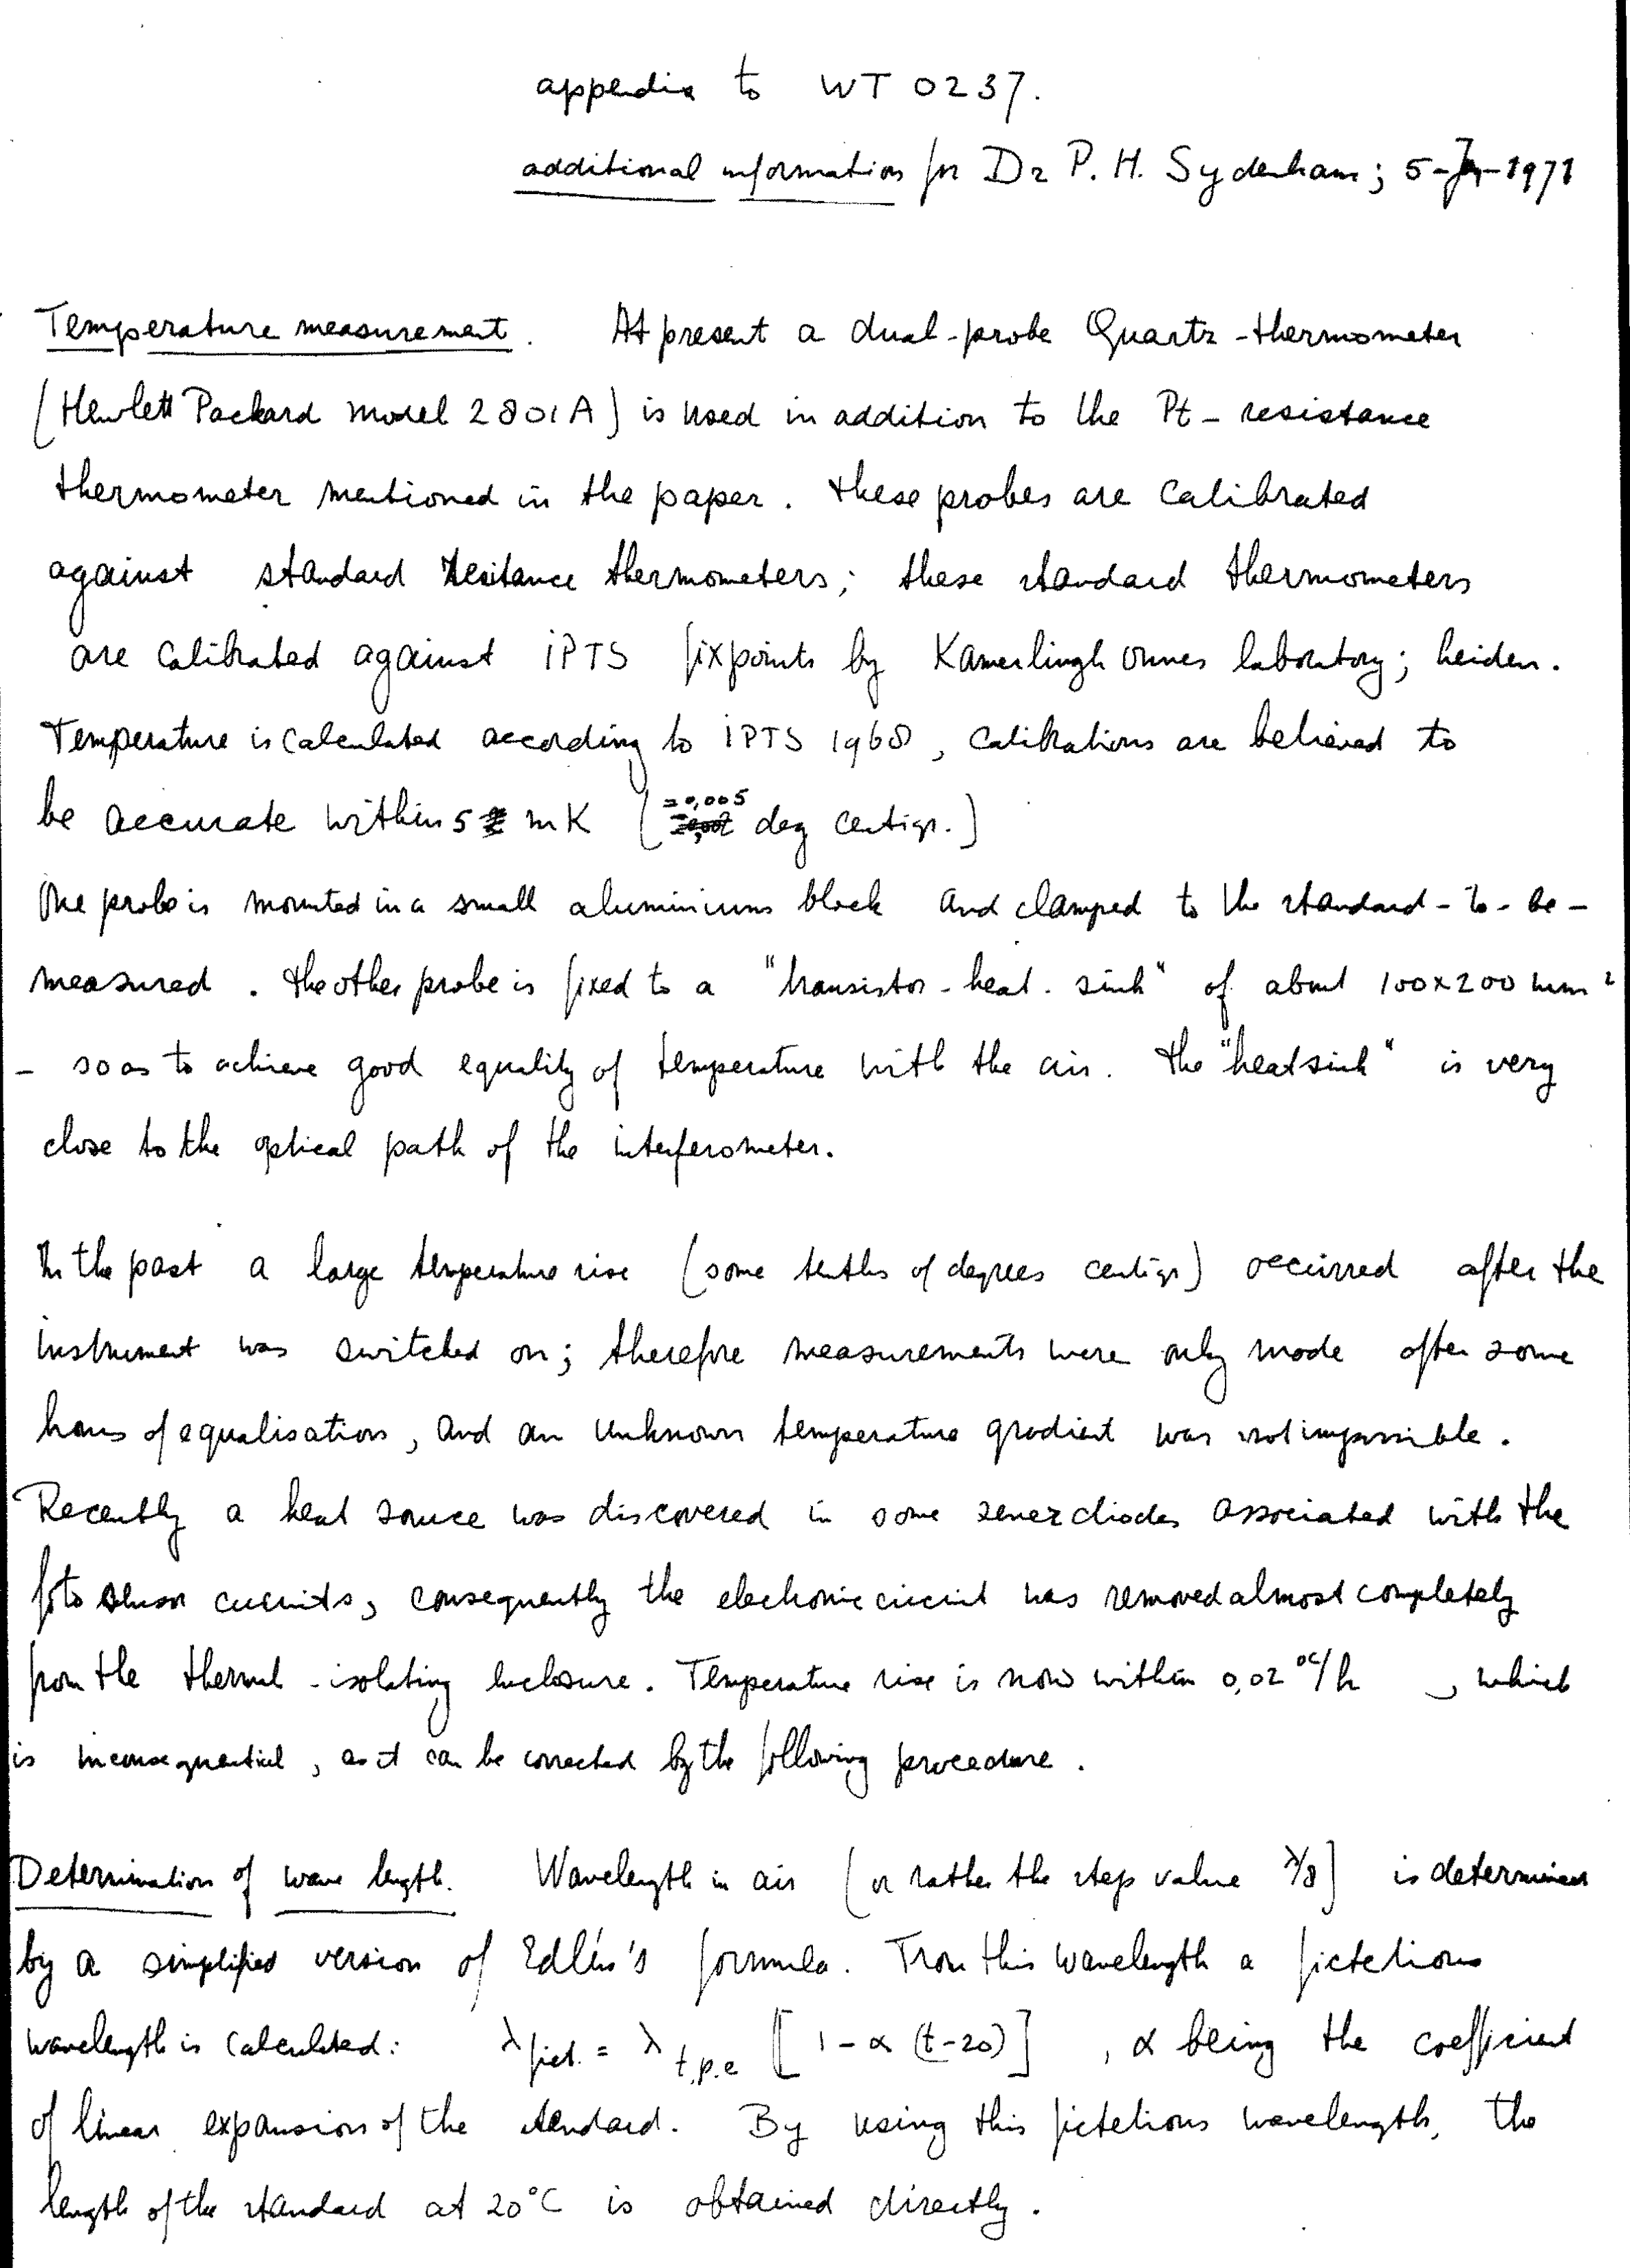 appendix to WT 0237.
additional information for Dr P. H. Sydenham; 5-1971
Temperature measurement. At present a dual-probe Quartz-thermometer
(Hewlett Packard model 2801A) is used in addition to the Pt-resistance
thermometer mentioned in the paper. these probes are calibrated
against standard resitance thermometers; these standard thermometers
are calibrated against IPTS fixpoints by Kamerlingh Onnes laboratory; Leiden.
Temperature is calculated according to IPTS 1968, calibrations are believed to
be accurate within 5 mK (=0,005 deg centigr.)
One probe is mounted in a small aluminium block and clamped to the standard-to-be-
measured. the other probe is fixed to a "transistor-heat-sink" of about 100x200 mm²
- so as to achieve good equality of temperature with the air. the "heatsink" is very
close to the optical path of the interferometer.
In the past a large temperature rise (some tenths of degrees centigr) occurred after the
instrument was switched on; therefore measurements were only made after some
hours of equalisation, and an unknown temperature gradient was not impossible.
Recently a heat source was discovered in some zenerdiodes associated with the
foto sensor circuits, consequently the electronic circuit was removed almost completely
from the thermal-isolating enclosure. Temperature rise is now within 0,02 °C/h, which
is inconsequential, as it can be corrected by the following procedure.
Determination of wave length. Wavelength in air (or rather the step value λ/8) is determined
by a simplified version of Edlén's formula. From this wavelength a fictetious
wavelength is calculated: λ fict. = λ t.p.e [1-α (t-20)], α being the coefficient
of linear expansion of the standard. By using this fictetious wavelength, the
length of the standard at 20°C is obtained directly.